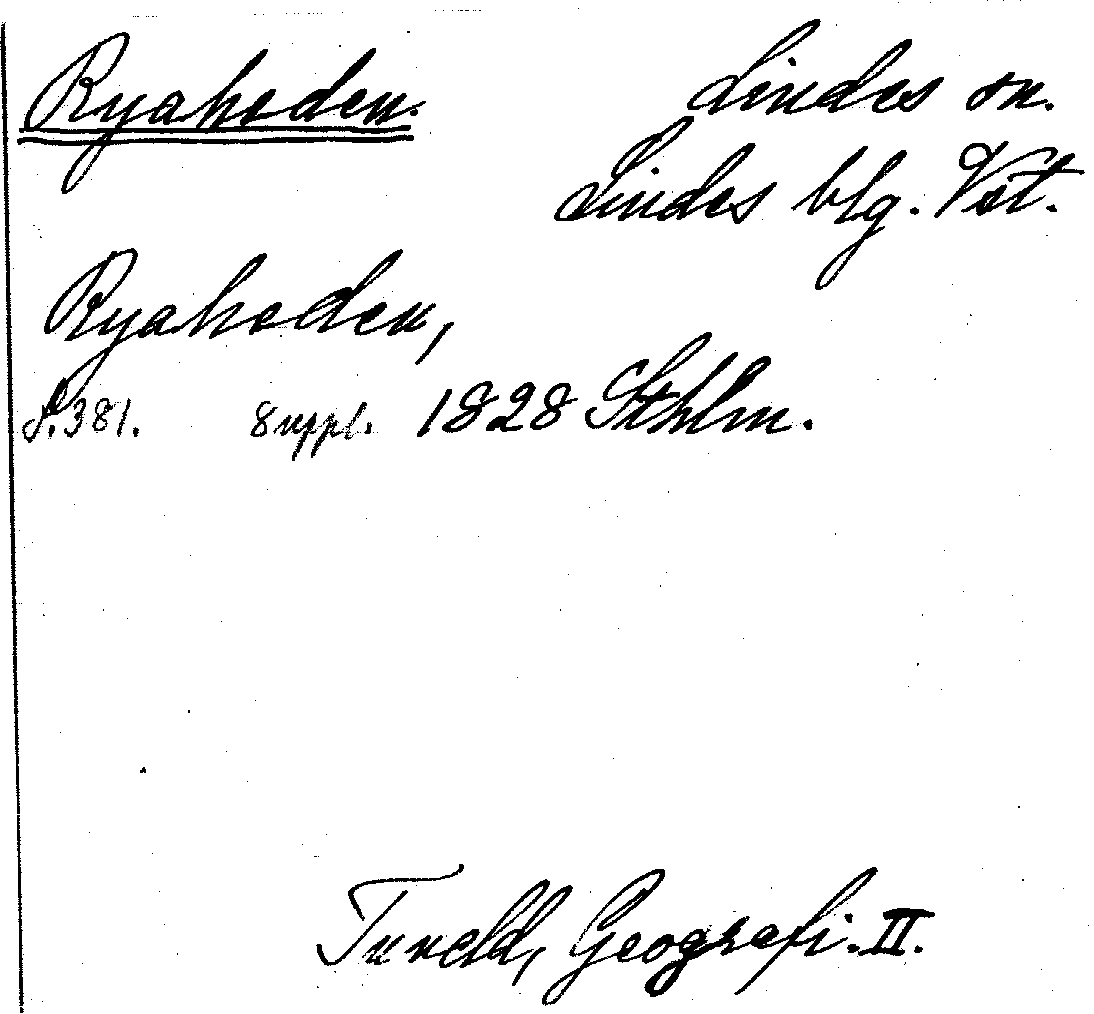 Ryahoden. Lindes sn.
Lindes blg. Vst.
Ryahoden,
S. 381. Suppl. 1828 Sthlm.
Tuneld, Geografi. II.